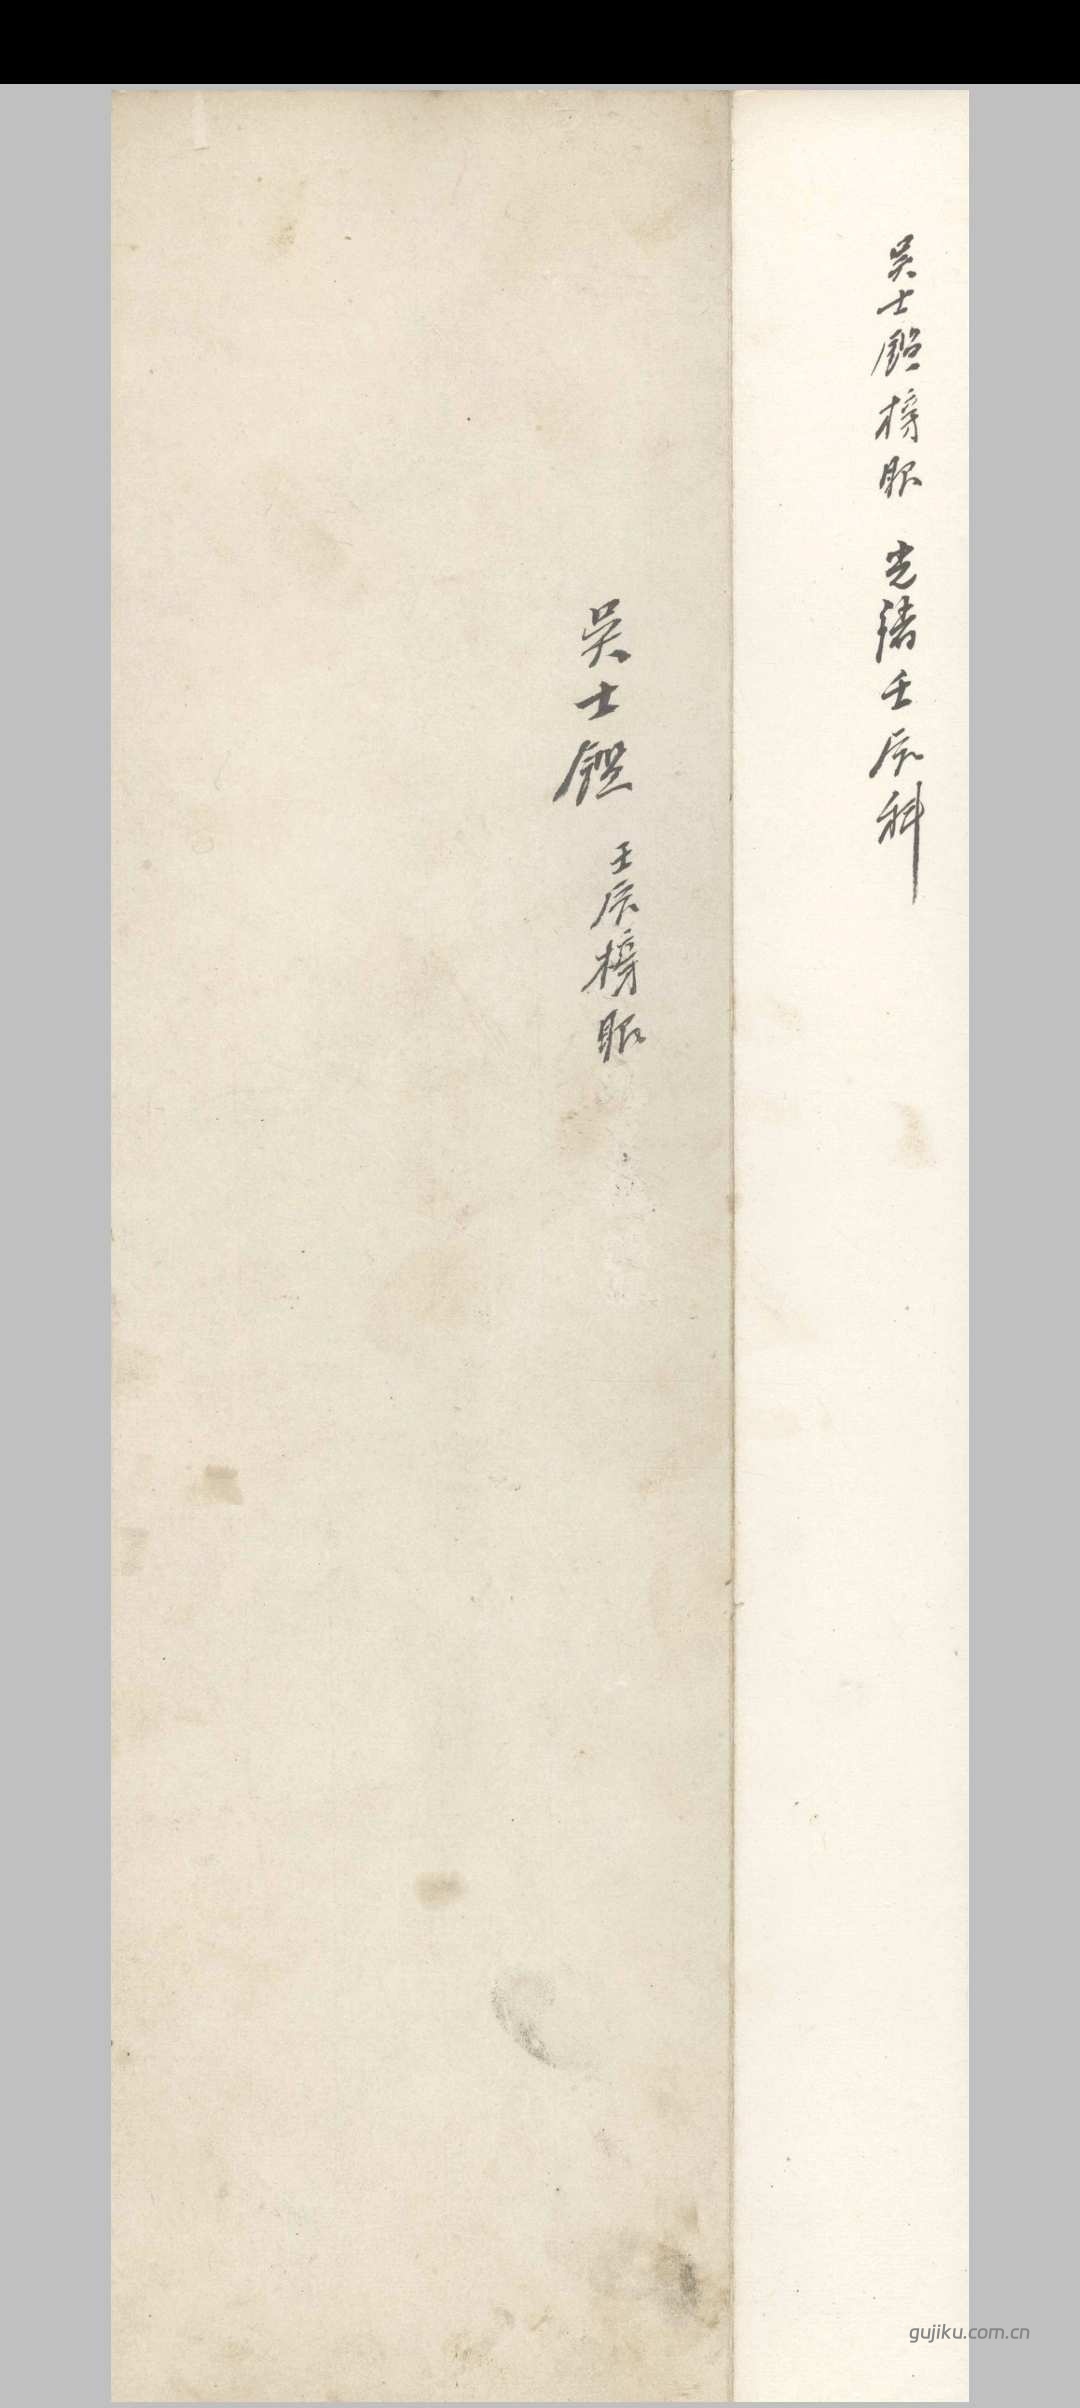 吳士鑑榜眼 光緒壬辰科
吳士鑑 壬辰榜眼
gujiku.com.cn